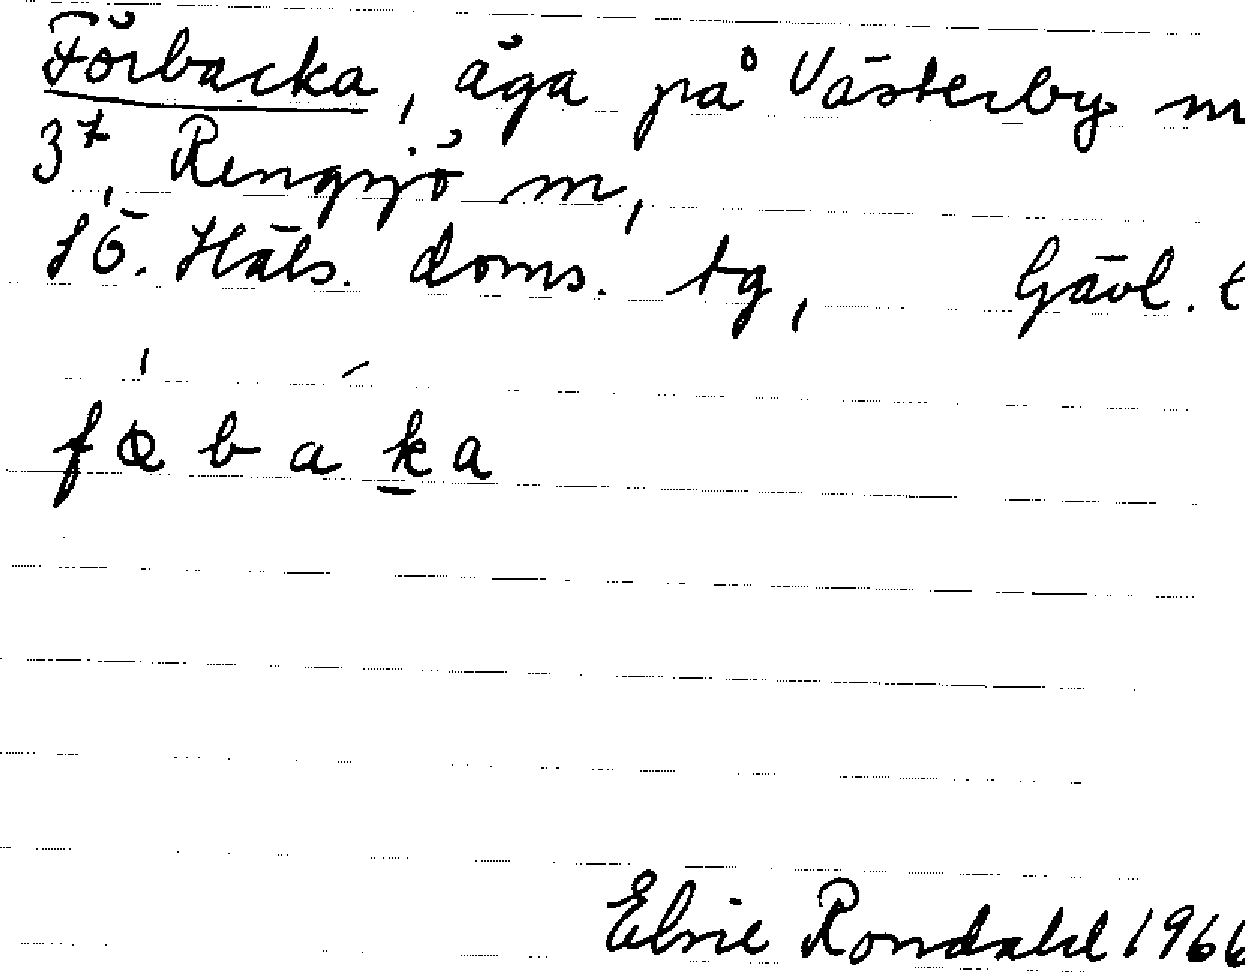 Förbacka, äga på Västerby nr
3⁷, Rengsjö sn,
SÖ. Häls. doms. tg, Gävl. l
f Q b a k a
Elvie Rondahl 1966